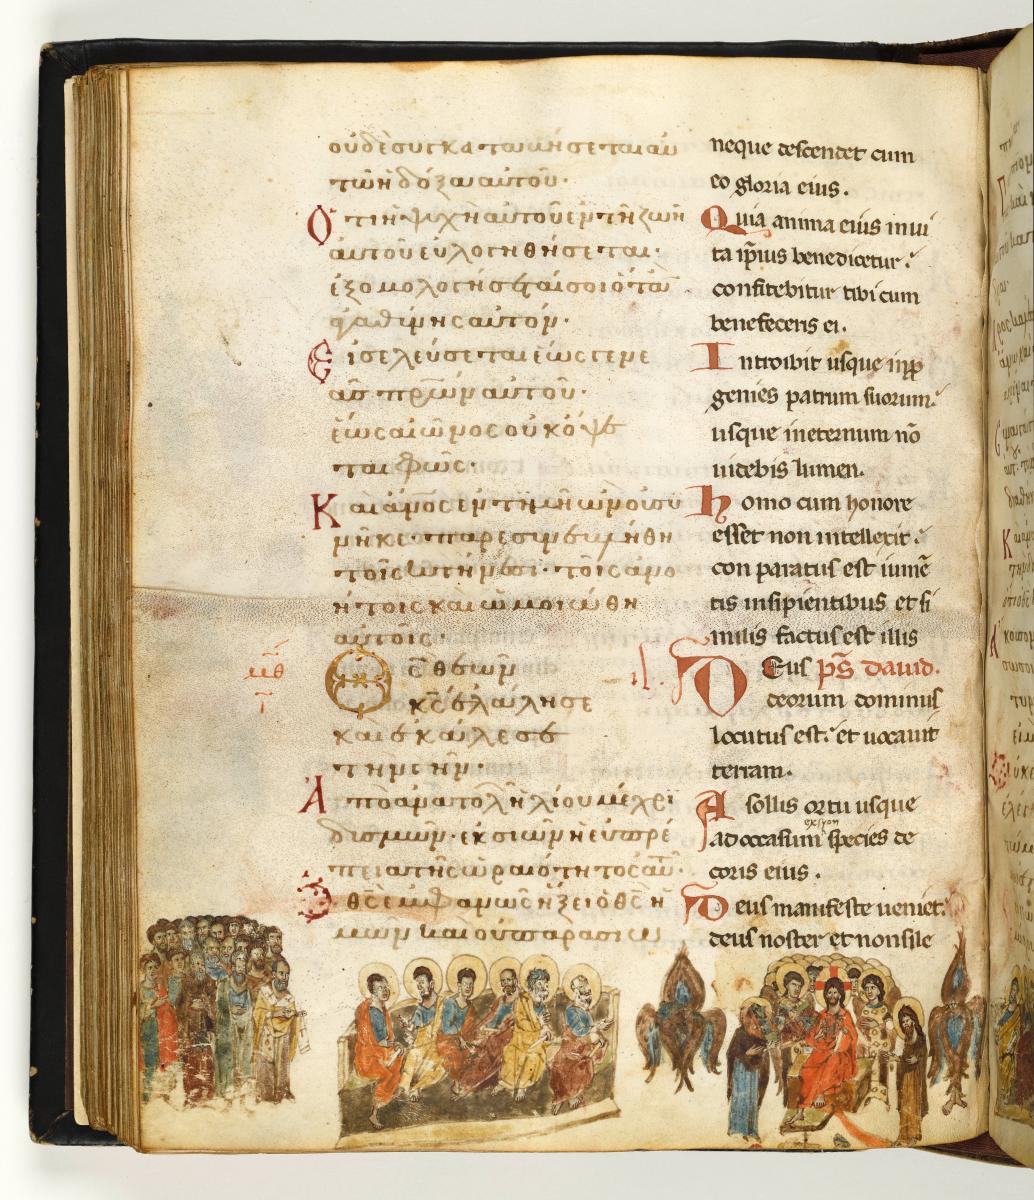 οὐδὲ συγκαταβήσεται αὐ
τῶ ἡ δόξα αὐτοῦ·
Ὅτι ἡ ψυχὴ αὐτοῦ ἐν τῆ ζωῆ
αὐτοῦ εὐλογηθήσεται·
ἐξομολογήσεταί σοι ὅταν
ἀγαθύνης αὐτόν·
Εἰσελεύσεται ἕως γενε
ᾶς π̅ρ̅ω̅ν αὐτοῦ·
ἕως αἰῶνος οὐκ ὄψε
ται φῶς·
Καὶ ἄνος ἐν τιμῆ ὢν οὐ συ
νῆκε· παρεσυνεβλήθη
τοῖς κτήνεσι· τοῖς ἀνο
ήτοις καὶ ὡμοιώθη
αὐτοῖς·
μθ
Θ̅ς̅ θεῶν
κ̅ς̅ ἐλάλησε
καὶ ἐκάλεσε
τὴν γῆν·
Ἀπὸ ἀνατολῆ ἡλίου μέχρι
δυσμῶν· ἐκ σιὼν ἡ εὐπρέ
πεια τῆς ὡραιότητος αὐτ·
Ὁ θ̅ς̅ ἐμφανῶς ἥξει ὁ θ̅ς̅ ἡ
μῶν καὶ οὐ παρασιω
neque descendet cum
eo gloria eius.
Quia anima eius in uui
ta ip̅ius benedicetur.
confitebitur tibi cum
benefeceris ei.
Introibit usque in p̅p̅
genies patrum suorum.
usque in eternum no̅
uidebis lumen.
homo cum honore
esset non intellexit.
con paratus est iume̅
tis insipientibus et si
milis factus est illis
Deus p̅s̅ dauid.
deorum dominus
locutus est. et uocauit
terram.
A sollis ortu usque
ad occasum ex syon species de
coris eius.
Deus manifeste ueniet.
deus noster et non sile